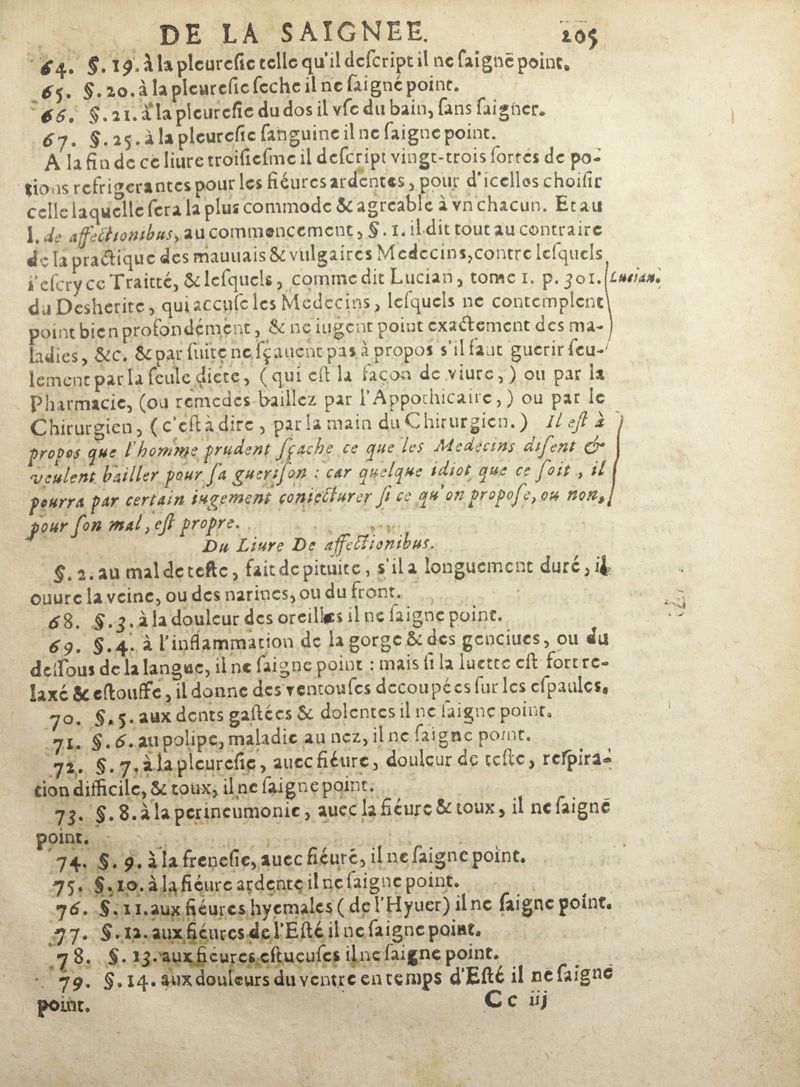 DE LA SAIGNEE. 205
64. §. 19. à la pleuresie telle qu'il descript il ne saignē point.
65. §. 20. à la pleuresie seche il ne saigne point.
66. §. 21. a la pleuresie du dos il vse du bain, sans saigner.
67. §. 25. à la pleuresie sanguine il ne saigne point.
A la fin de ce liure troisiesme il descript vingt-trois sortes de po-
tions refrigerantes pour les fiéures ardentes, pour d'icelles choisir
celle laquelle sera la plus commode & agreable à vn chacun. Et au
l. de affectionibus, au commencement, §. 1. il dit tout au contraire
de la practique des mauuais & vulgaires Medecins, contre lesquels
i'escry ce Traitté, & lesquels, comme dit Lucian, tome 1. p. 301. Lucian.
du Desherite, qui accuse les Medecins, lesquels ne contemplent
point bien profondément, & ne iugent point exactement des ma-
ladies, &c. & par suite ne sçauent pas à propos s'il faut guerir seu-
lement par la seule diete, (qui est la façon de viure,) ou par la
Pharmacie, (ou remedes baillez par l'Appothicaire,) ou par le
Chirurgien, (c'est à dire, par la main du Chirurgien.) Il est à
propos que l'homme prudent sçache ce que les Medecins disent &
veulent bailler pour sa guerison : car quelque idiot que ce soit, il
pourra par certain iugement coniecturer si ce qu'on propose, ou non,
pour son mal, est propre.
Du Liure De affectionibus.
§. 2. au mal de teste, fait de pituite, s'il a longuement duré, il
ouure la veine, ou des narines, ou du front.
68. §. 3. à la douleur des oreilles il ne saigne point.
69. §. 4. à l'inflammation de la gorge & des genciues, ou du
dessous de la langue, il ne saigne point : mais si la luette est fort re-
laxé & estouffe, il donne des ventouses decoupées sur les espaules.
70. §. 5. aux dents gastées & dolentes il ne saigne point.
71. §. 6. au polipe, maladie au nez, il ne saigne point.
72. §. 7. à la pleuresie, auec fiéure, douleur de teste, respira-
tion difficile, & toux, il ne saigne point.
73. §. 8. à la perineumonie, auec la fiéure & toux, il ne saignē
point.
74. §. 9. à la frenesie, auec fiéuré, il ne saigne point.
75. §. 10. à la fiéure ardente il ne saigne point.
76. §. 11. aux fiéures hyemales (de l'Hyuer) il ne saigne point.
77. §. 12. aux fiéures de l'Esté il ne saigne point.
78. §. 13. aux fiéures estueuses il ne saigne point.
79. §. 14. aux douleurs du ventre en temps d'Esté il ne saigne
point. Cc iij